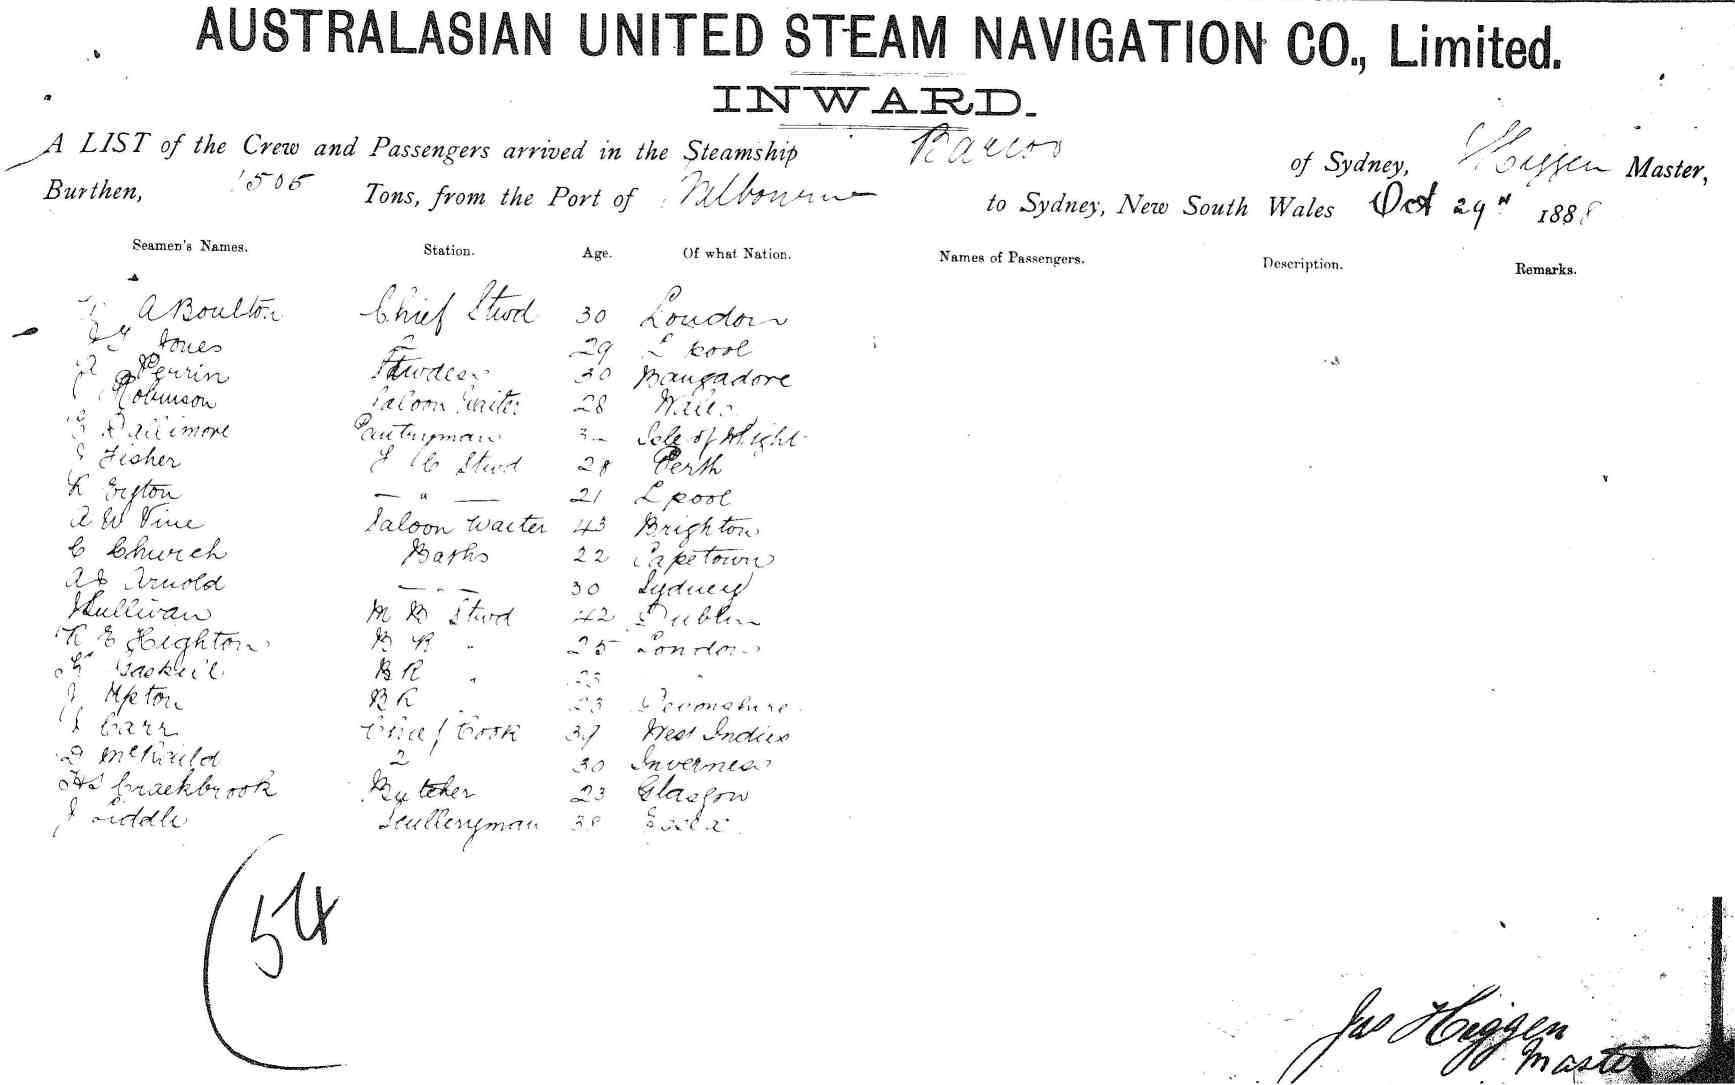 AUSTRALASIAN UNITED STEAM NAVIGATION CO., Limited.
INWARD.
A LIST of the Crew and Passengers arrived in the Steamship Barcoo of Sydney, Higgen Master,
Burthen, 1505 Tons, from the Port of Melbourne to Sydney, New South Wales Oct 29th 1888
Seamen's Names. Station. Age. Of what Nation. Names of Passengers. Description. Remarks.
A Boulton Chief Stwd 30 London
Jones 2 29 L pool
Perrin Stwdess 30 Bangadore
Robinson Saloon Waiter 28 Wales
Dallimore Pantryman Isle of Wight
Fisher F C Stwd 28 Perth
R Eryton — " — 21 L pool
A W Vine Saloon Waiter 43 Brighton
C Church Baths 22 Capetown
Arnold — " — 30 Sydney
J Sullivan M R Stwd 42 Dublin
R E Heghton B R " 25 London
Gaskell B R "
J Upton B R 23 Devonshire
J Carr Chief Cook 39 West Indies
D 2 30 Inverness
HS Crackbrook Butcher 23 Glasgow
J Liddle Sculleryman 38 Essex
54
Jas Higgen
Master